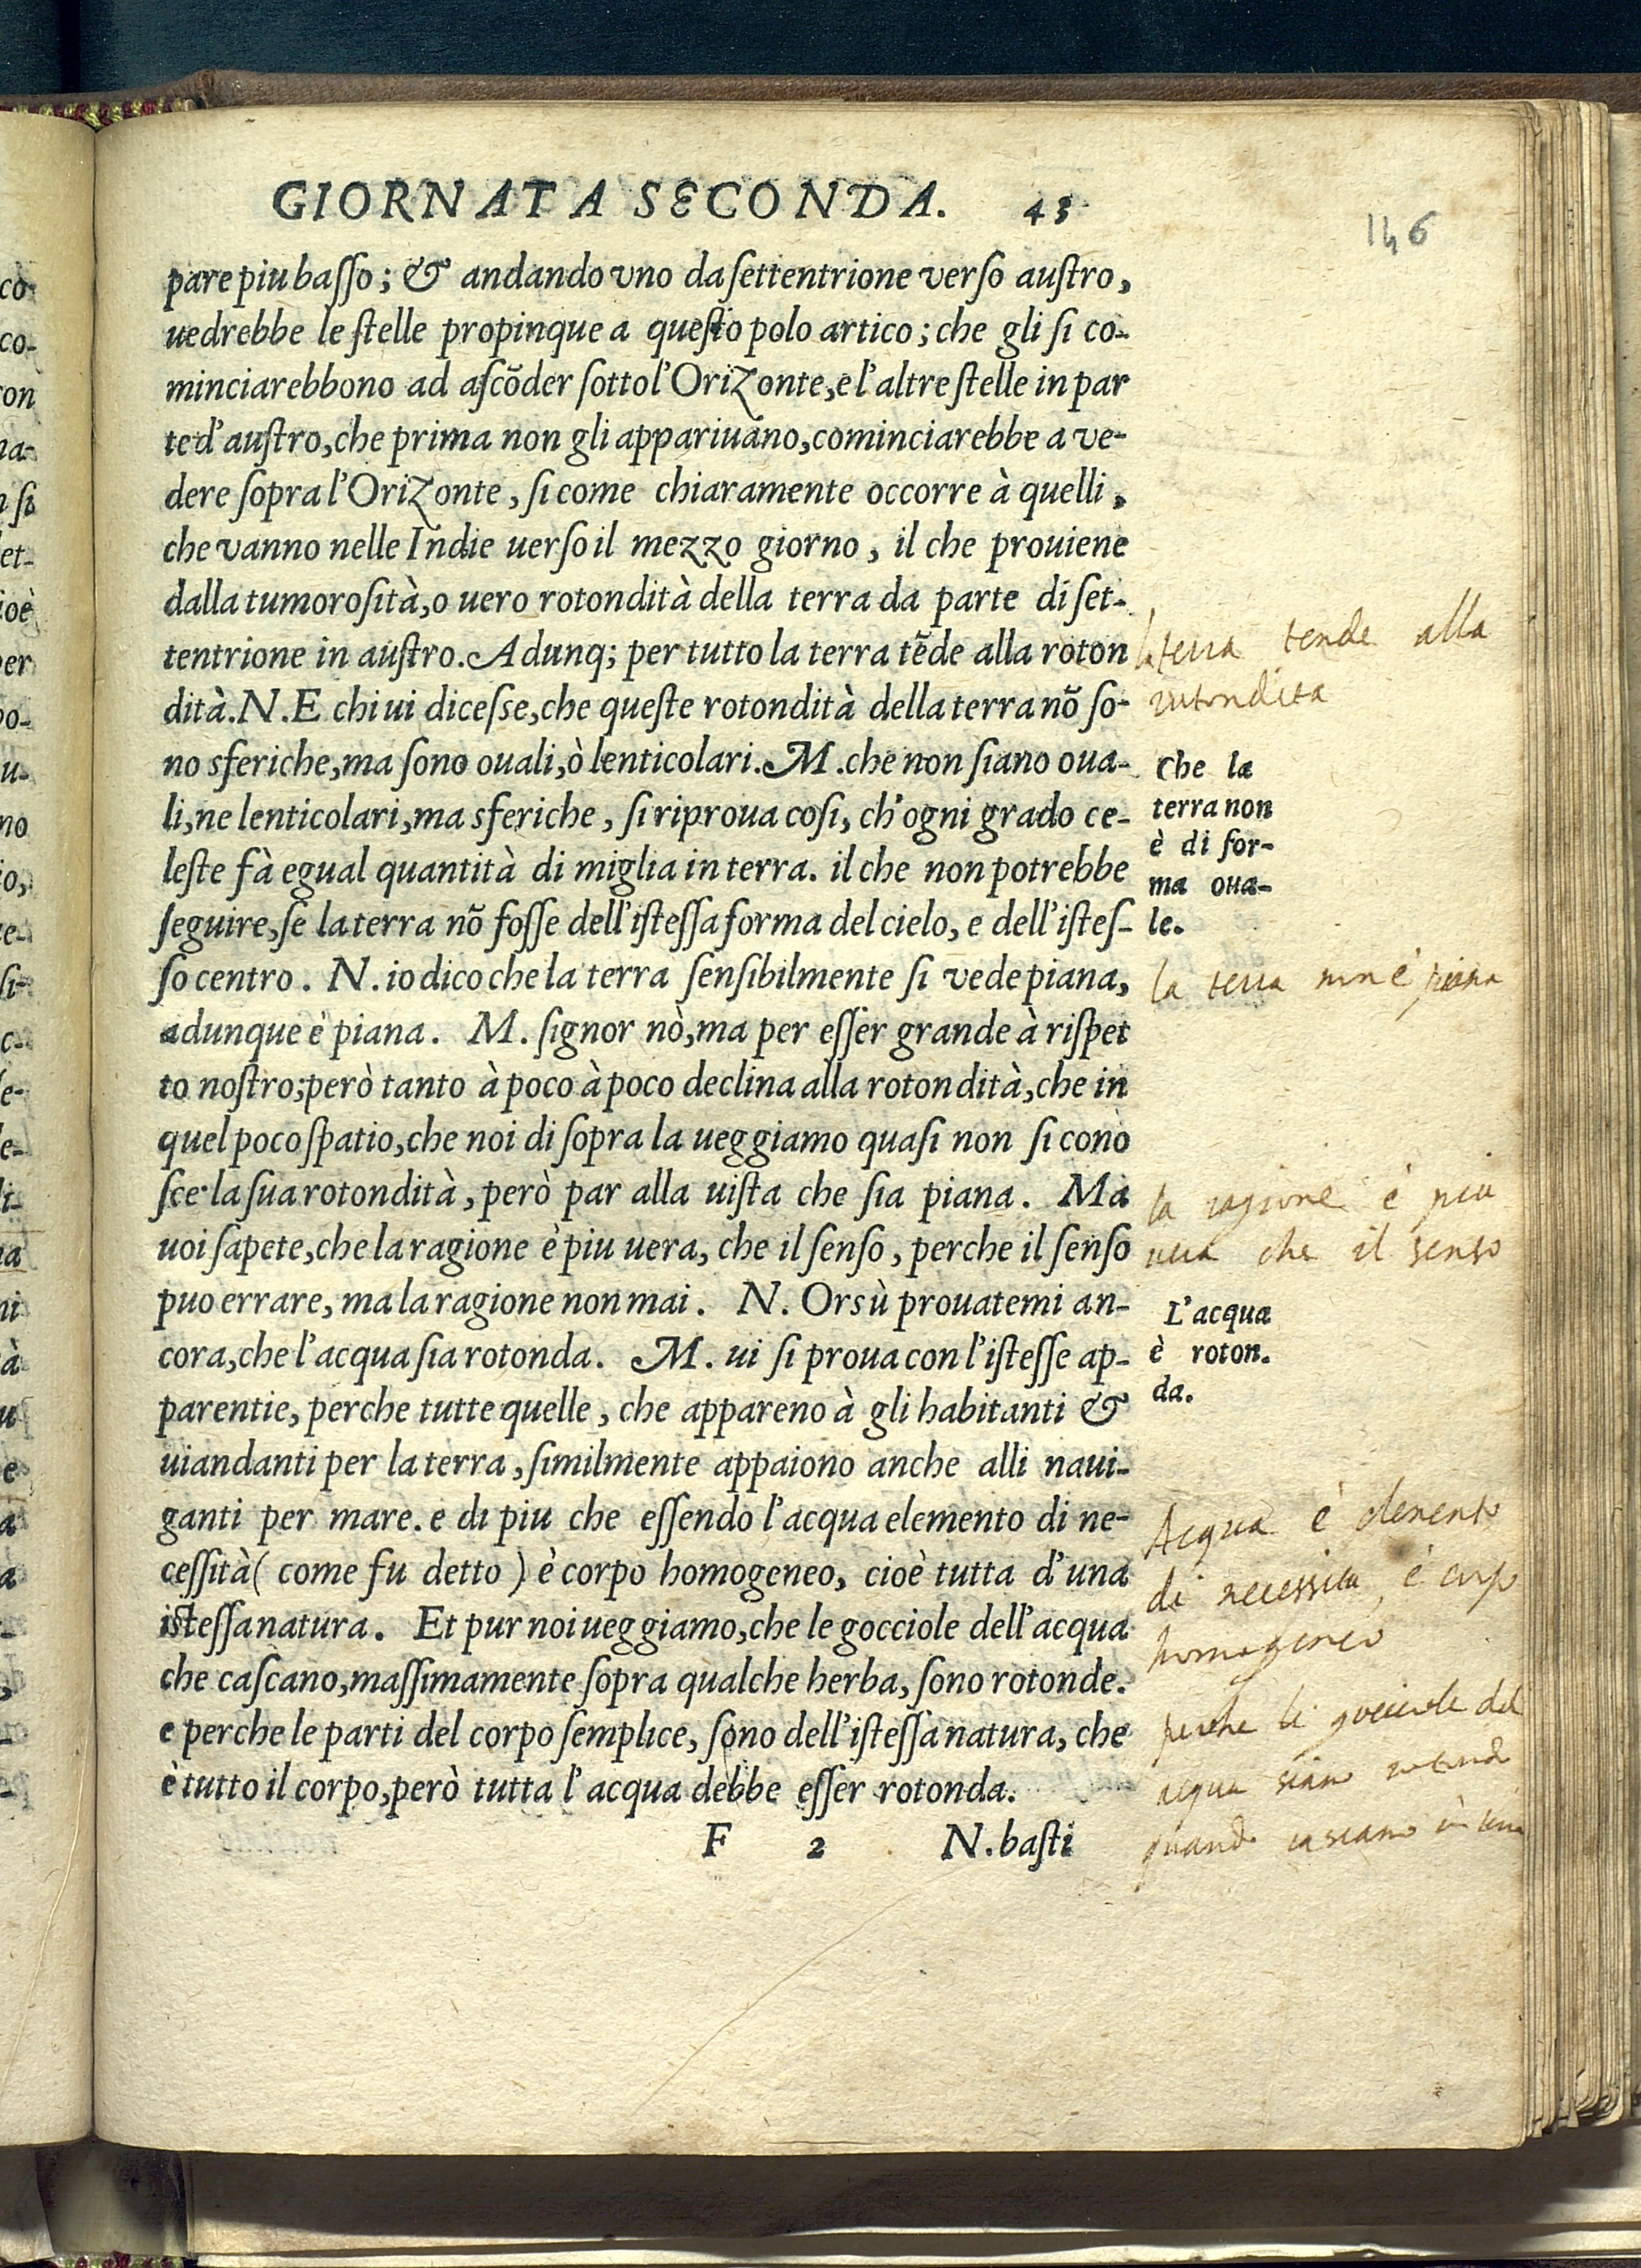 GIORNATA SECONDA. 43
146
pare piu basso; & andando vno da settentrione verso austro,
uedrebbe le stelle propinque a questo polo artico; che gli si co-
minciarebbono ad ascõder sotto l'Orizonte, e l'altre stelle in par
te d'austro, che prima non gli appariuano, cominciarebbe a ve-
dere sopra l'Orizonte, si come chiaramente occorre à quelli,
che vanno nelle Indie uerso il mezzo giorno, il che prouiene
dalla tumorosità, o uero rotondità della terra da parte di set-
tentrione in austro. Adunq; per tutto la terra tẽde alla roton
dità. N. E chi ui dicesse, che queste rotondità della terra nõ so-
no sferiche, ma sono ouali, ò lenticolari. M. che non siano oua-
li, ne lenticolari, ma sferiche, si riproua cosi, ch'ogni grado ce-
leste fà egual quantità di miglia in terra. il che non potrebbe
seguire, se la terra nõ fosse dell'istessa forma del cielo, e dell'istes-
so centro. N. io dico che la terra sensibilmente si vede piana,
adunque è piana. M. signor nò, ma per esser grande à rispet
to nostro; però tanto à poco à poco declina alla rotondità, che in
quel poco spatio, che noi di sopra la ueggiamo quasi non si cono
sce la sua rotondità, però par alla uista che sia piana. Ma
uoi sapete, che la ragione è piu uera, che il senso, perche il senso
puo errare, ma la ragione non mai. N. Orsù prouatemi an-
cora, che l'acqua sia rotonda. M. ui si proua con l'istesse ap-
parentie, perche tutte quelle, che appareno à gli habitanti &
uiandanti per la terra, similmente appaiono anche alli naui-
ganti per mare. e di piu che essendo l'acqua elemento di ne-
cessità ( come fu detto ) è corpo homogeneo, cioè tutta d'una
istessa natura. Et pur noi ueggiamo, che le gocciole dell'acqua
che cascano, massimamente sopra qualche herba, sono rotonde.
e perche le parti del corpo semplice, sono dell'istessa natura, che
è tutto il corpo, però tutta l'acqua debbe esser rotonda.
F 2 N. basti
la terra tende alla
rotondita
Che la
terra non
è di for-
ma oua-
le.
la terra non è piana
la ragione è piu
uera che il senso
L'acqua
è roton.
da.
Acqua è elemento
di necessita, è corpo
homogeneo
perche le gocciole del
acqua siano rotonde
quando cascano in